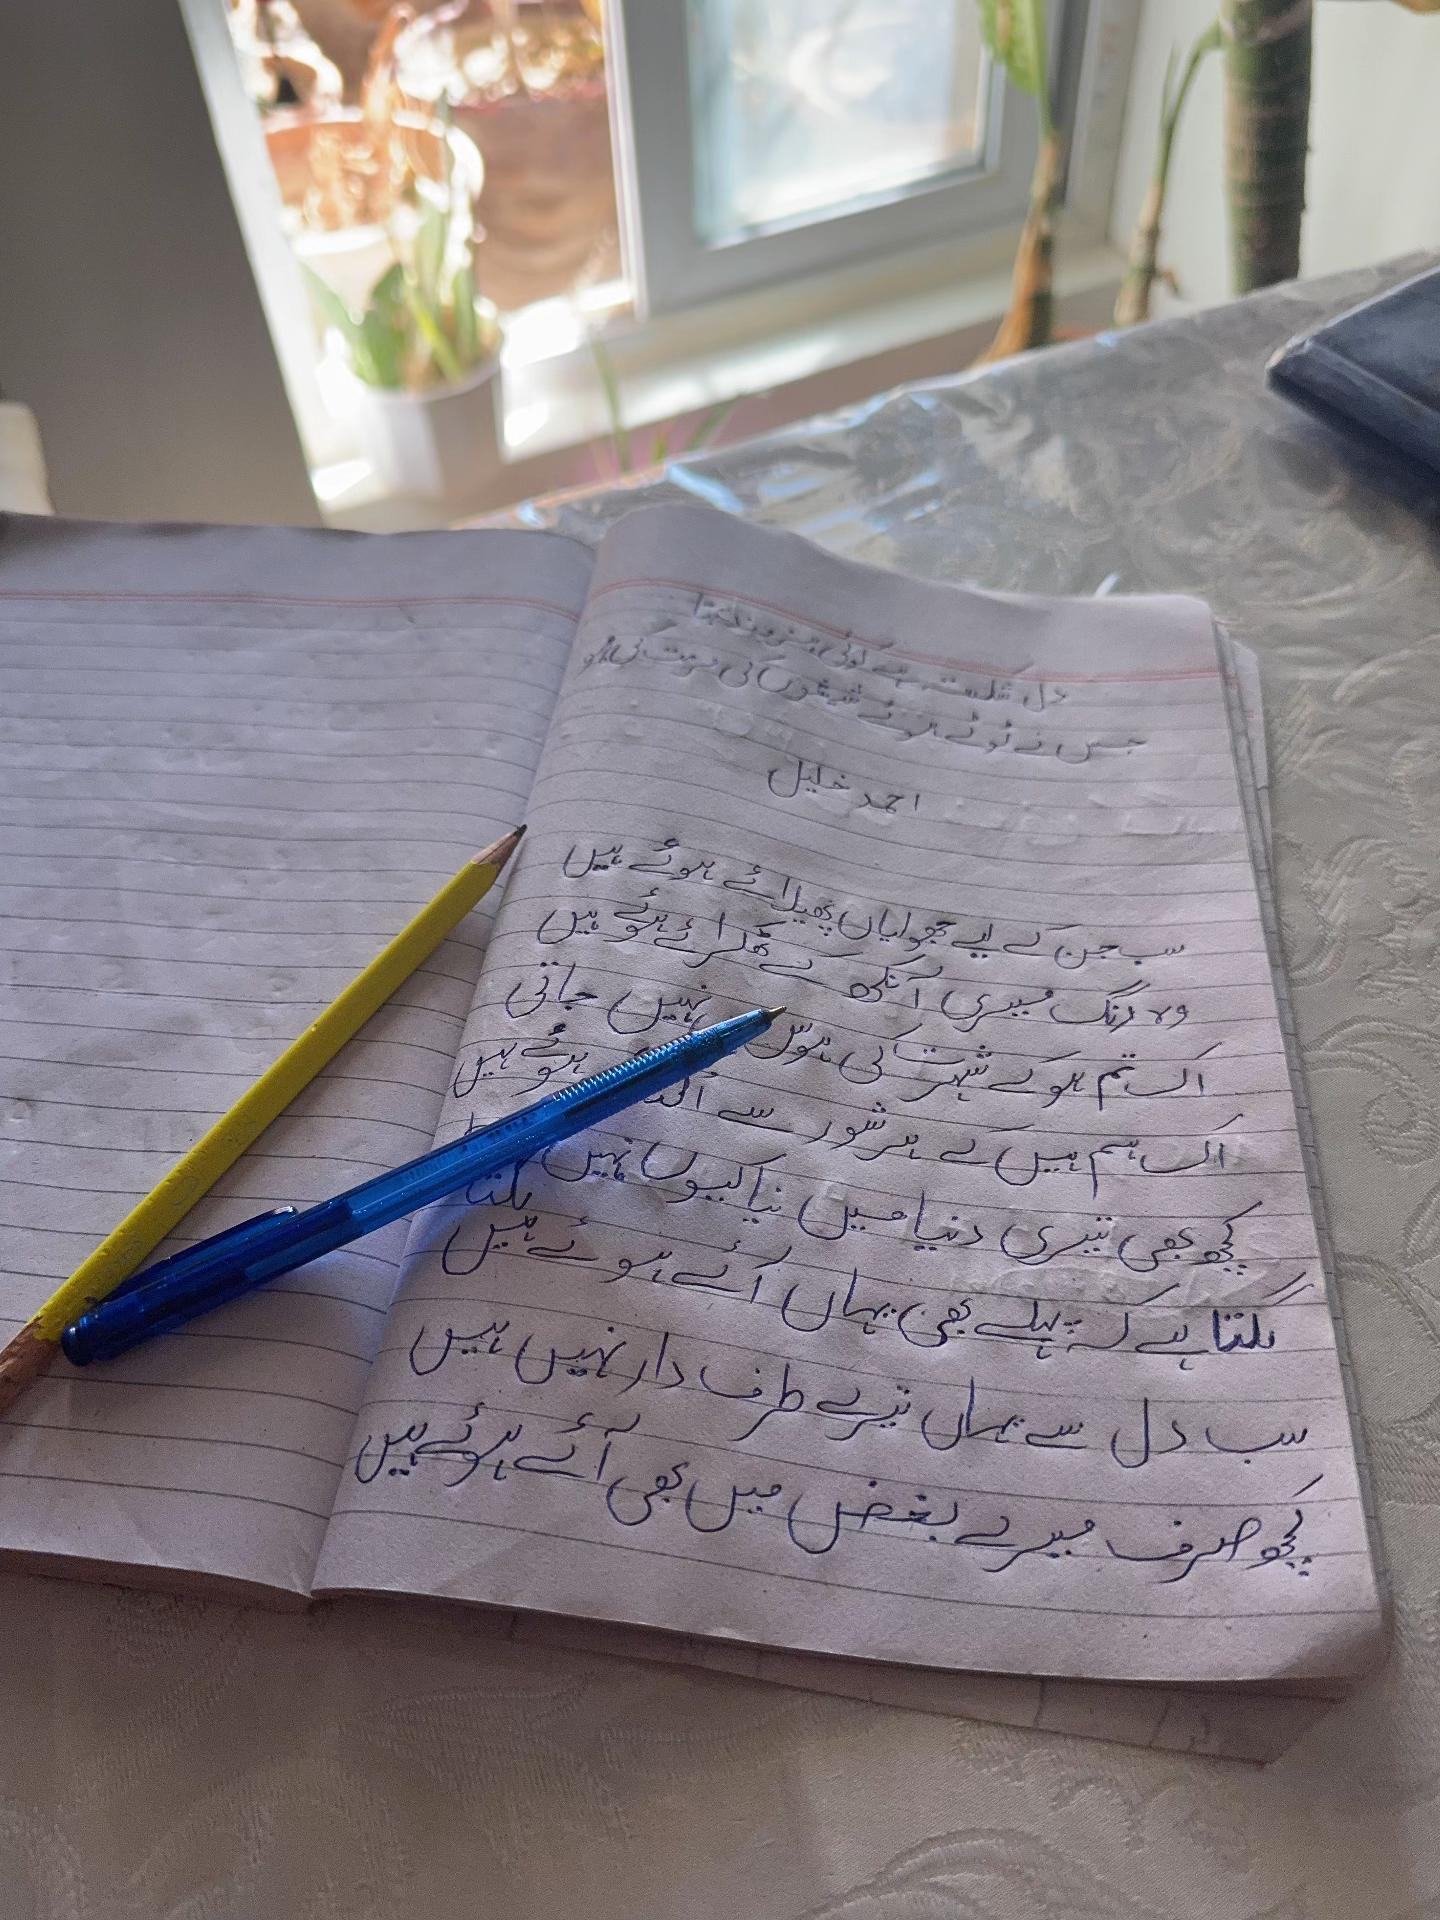 دل شکستہ ہے کوئی ہنر مند
جس نے ٹوٹے ہوئے شیشوں کی مرمت کی ہو
احمد خلیل
سب جن کے لیے جھولیاں پھیلائے ہوئے ہیں
وہ رنگ میری آنکھ کے ٹھکرائے ہوئے ہیں
اک تم ہو کے شہرت کی ہوس نہیں جاتی
اک ہم ہیں کے ہر شور سے ہوئے ہیں
کچھ بھی تیری دنیا میں نیا کیوں نہیں لگتا
لگتا ہے کہ پہلے بھی یہاں آئے ہوئے ہیں
سب دل سے یہاں تیرے طرف دار نہیں ہیں
کچھ صرف میرے بغض میں بھی آئے ہوئے ہیں